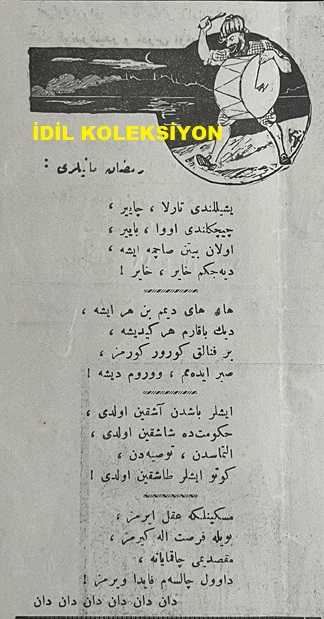 İDİL KOLEKSİYON
رمضان مانيلری :
يشيللندی تارلا ، چاير ،
چيچكلندی اووا ، باير ،
اولان بيتن صاچمه ايشه ،
ديه جكم خاير ، خاير !
های های ديمم بن هر ايشه ،
ديك باقارم هر كيديشه ،
بر فنالق كورور كورمز ،
صبر ايده مم ، وورورم ديشه !
ايشلر باشدن آشقين اولدی ،
حكومت ده شاشقين اولدی ،
التماسدن ، توصيه دن ،
كوتو ايشلر طاشقين اولدی !
مسكينلكه عقل ايرمز ،
بويله فرصت اله كيرمز ،
مقصديمی چاقمايانه ،
داوول چالسه م فايدا ويرمز !
دان دان دان دان دان دان